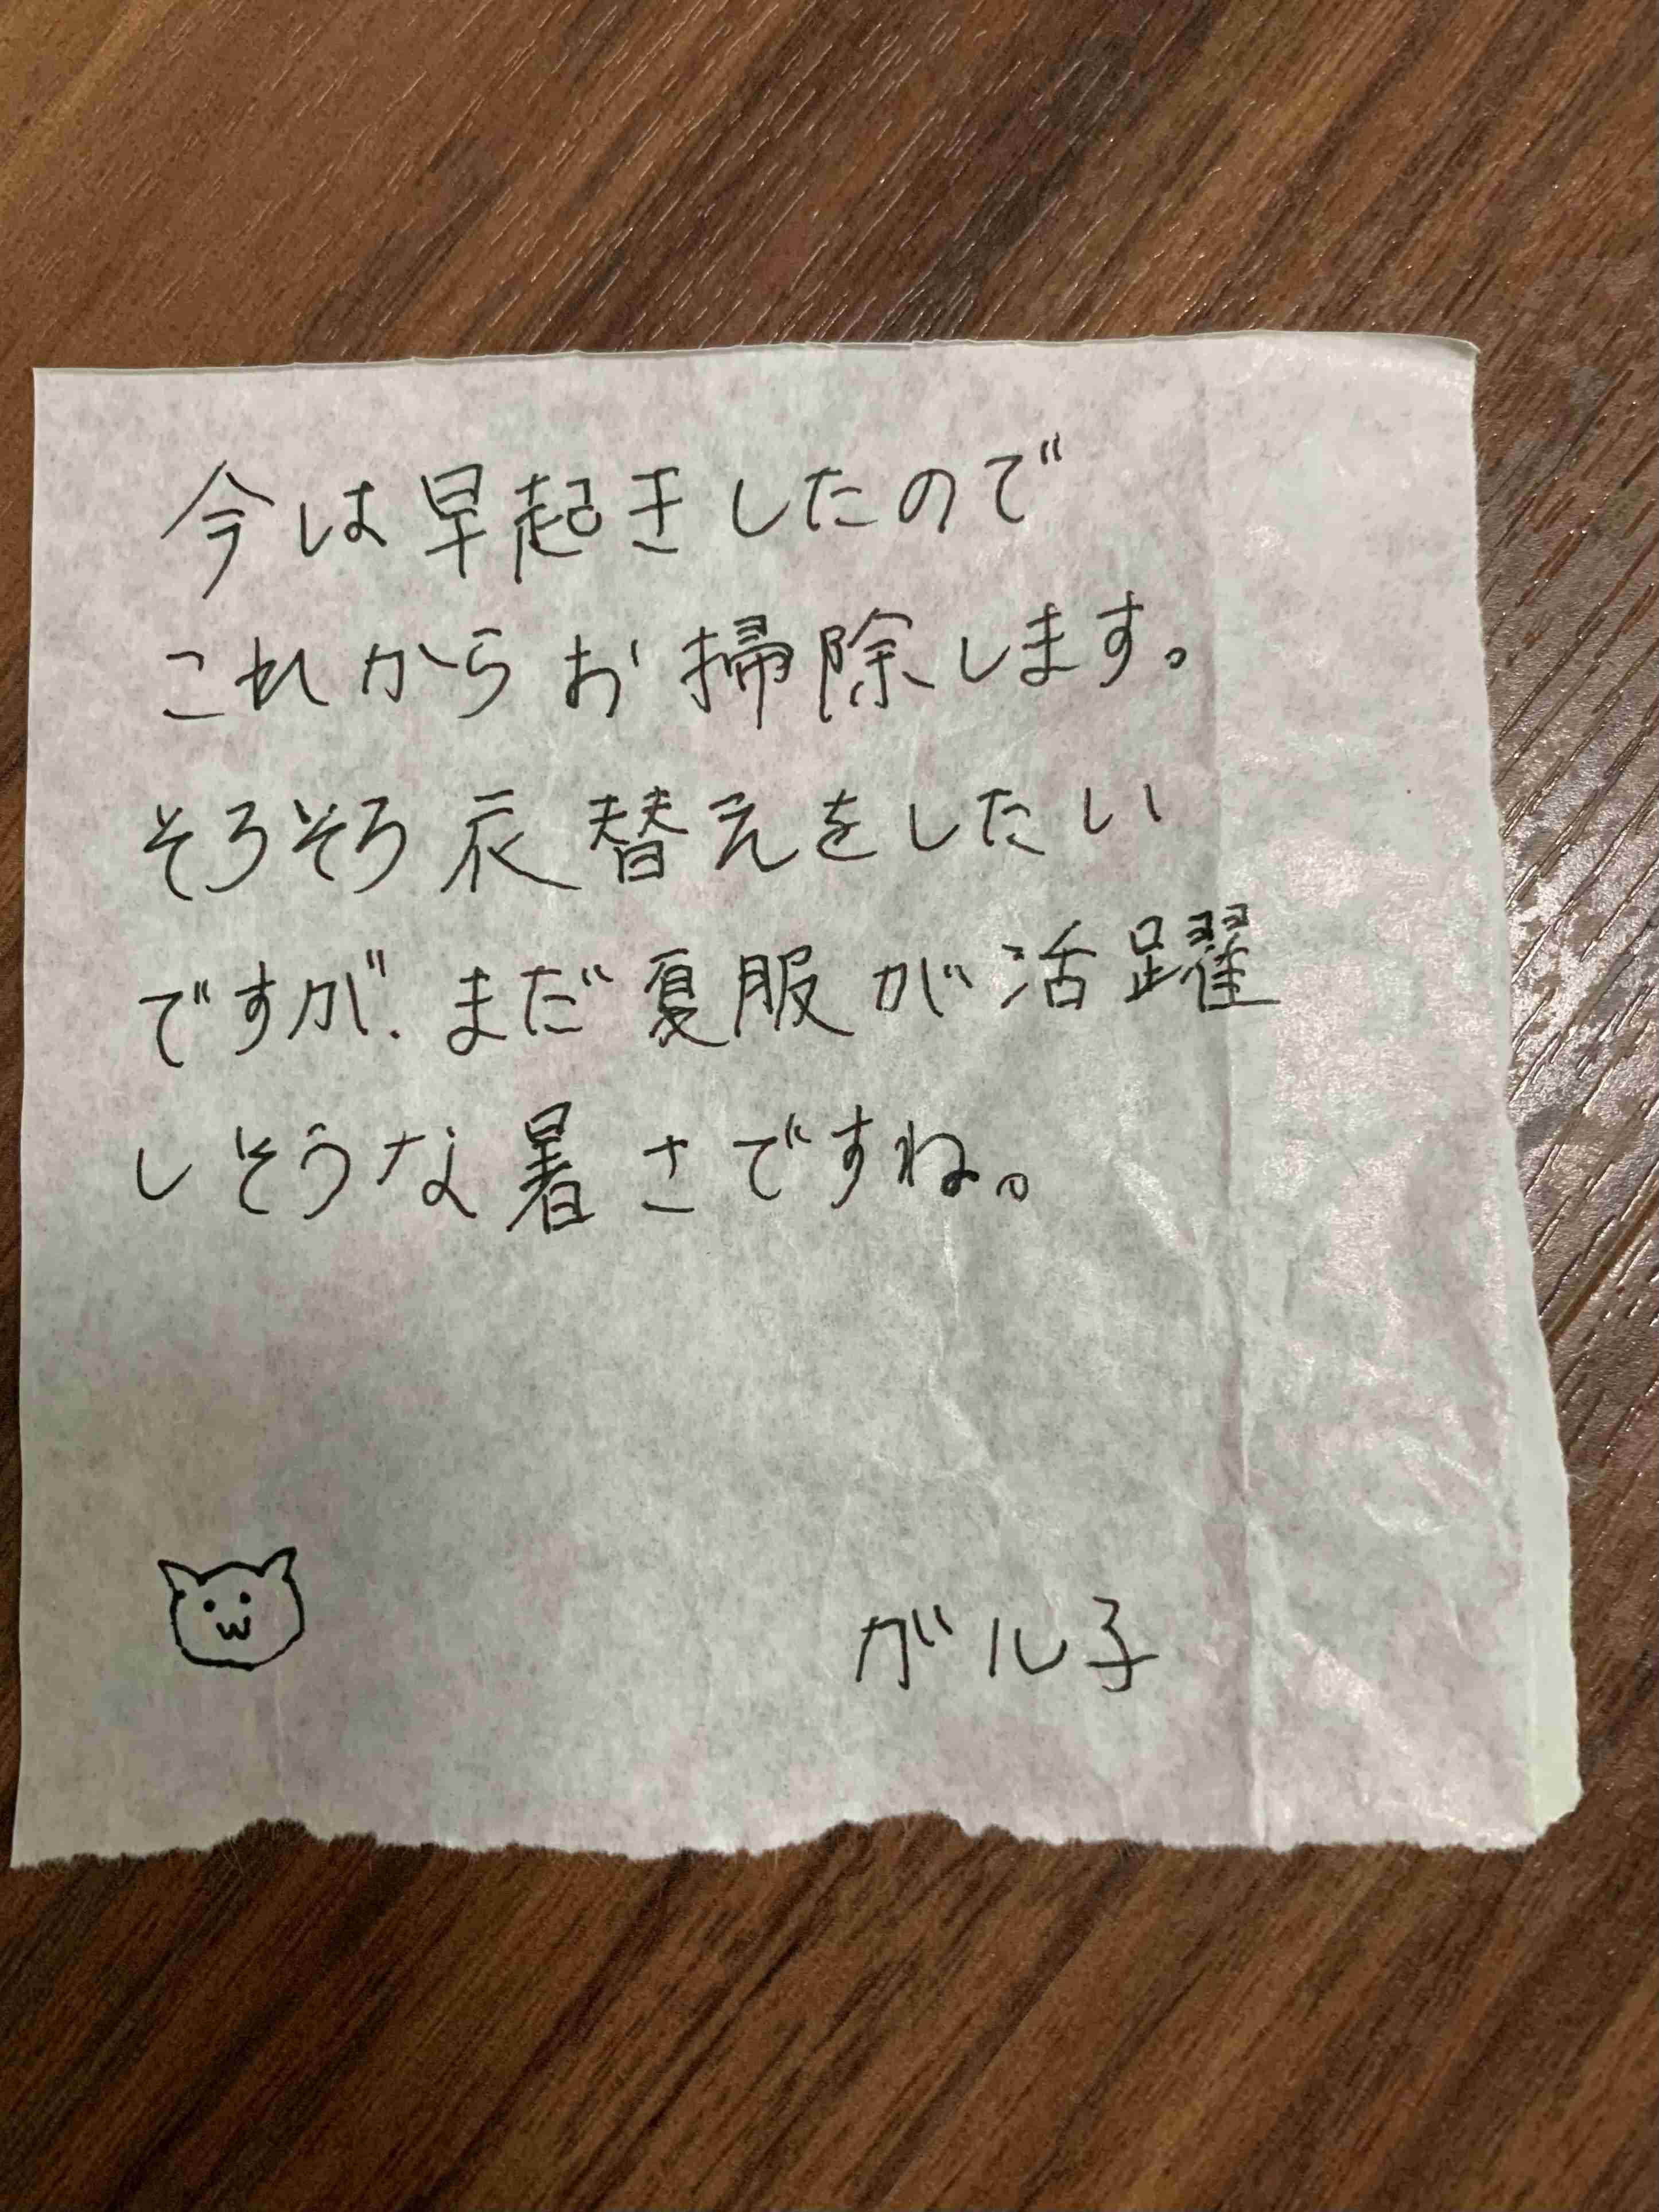 今は早起きしたので
これからお掃除します。
そろそろ衣替えをしたい
ですが、まだ夏服が活躍
しそうな暑さですね。
ガル子